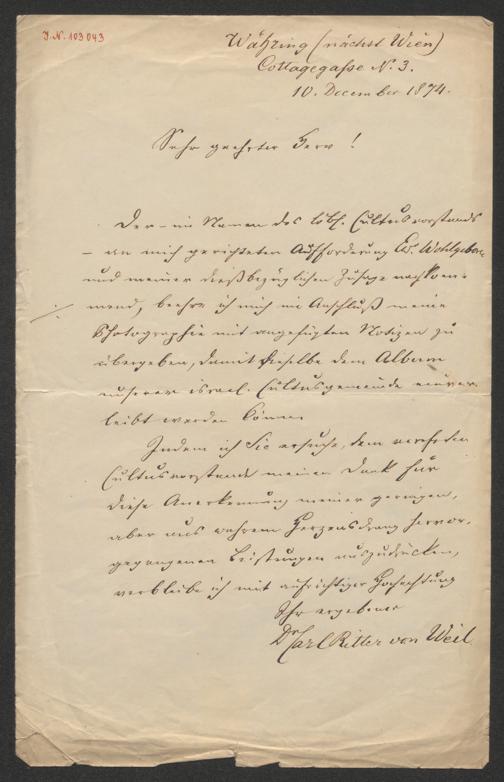 J. N. 103043
Währing (nächst Wien)
Cottagegaße No. 3.
10. December 1874.
Sehr geehrter Herr!
Der – im Namen des löbl. Cultusvorstands
– an mich gerichteten Aufforderung Ew. Wohlgeboren
und meiner dießbezüglichen Zusage nachkom-
mend, beehre ich mich im Anschluß meine
Photographie mit angefügten Notizen zu
übergeben, damit dieselbe dem Album
unserer israel. Cultusgemeinde einver
leibt werden könne.
Indem ich Sie ersuche, dem verehrten
Cultusvorstande meinen Dank für
diese Anerkennung meiner geringen,
aber aus wahrem Herzensdrang hervor-
gegangenen Leistungen auszudrücken,
verbleibe ich mit aufrichtiger Hochachtung
Ihr ergebener
Dr Carl Ritter von Weil